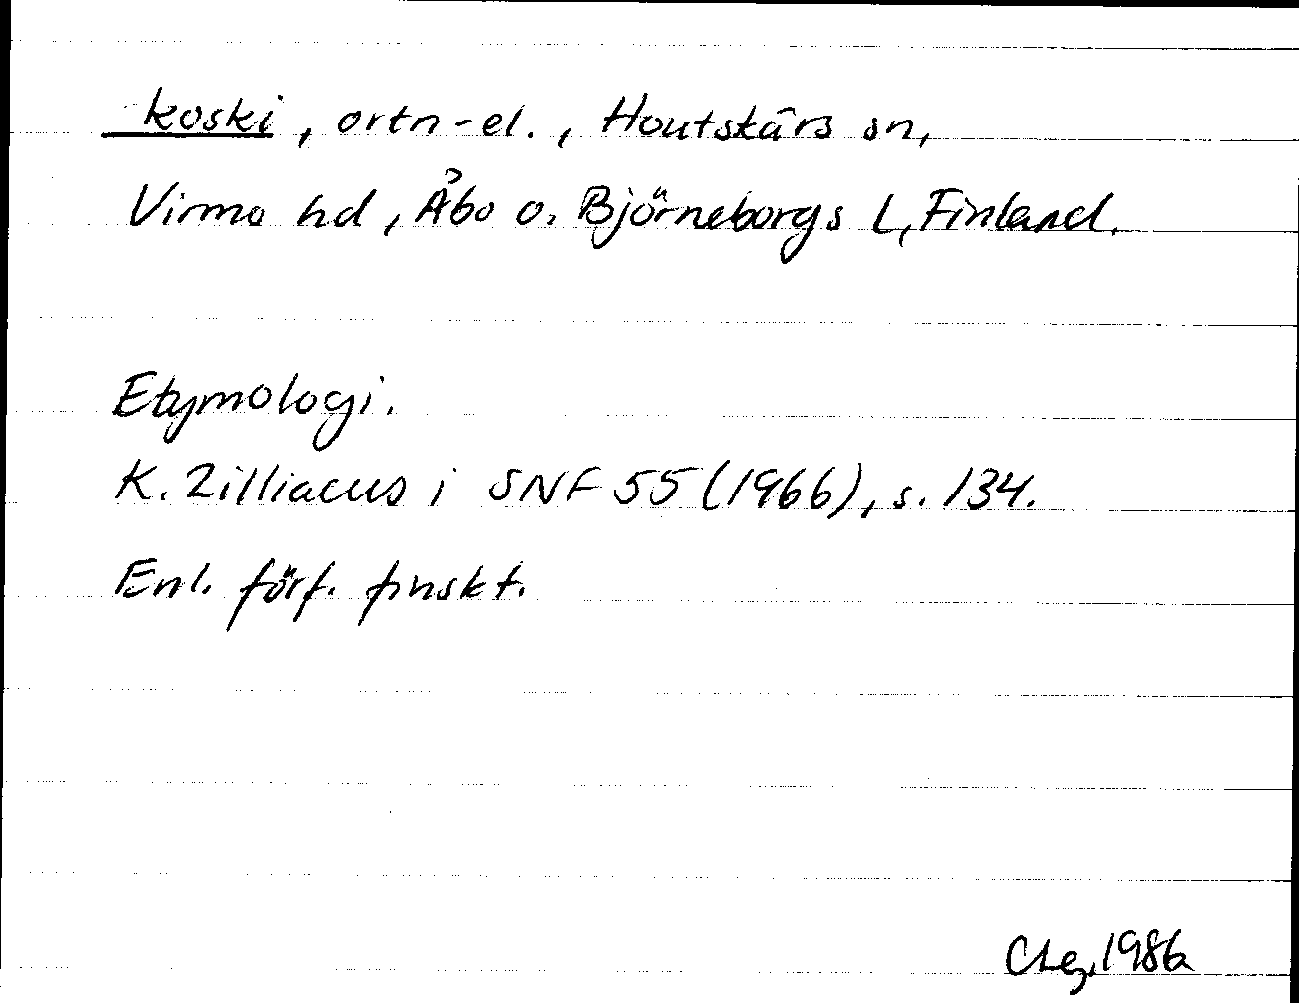 -koski, ortn-el., Houtskärs sn,
Virmo hd, Åbo o. Björneborgs L, Finland.
Etymologi.
K. Zilliacus i SNF 55 (1966), s. 134.
Enl. förf. finskt.
1986